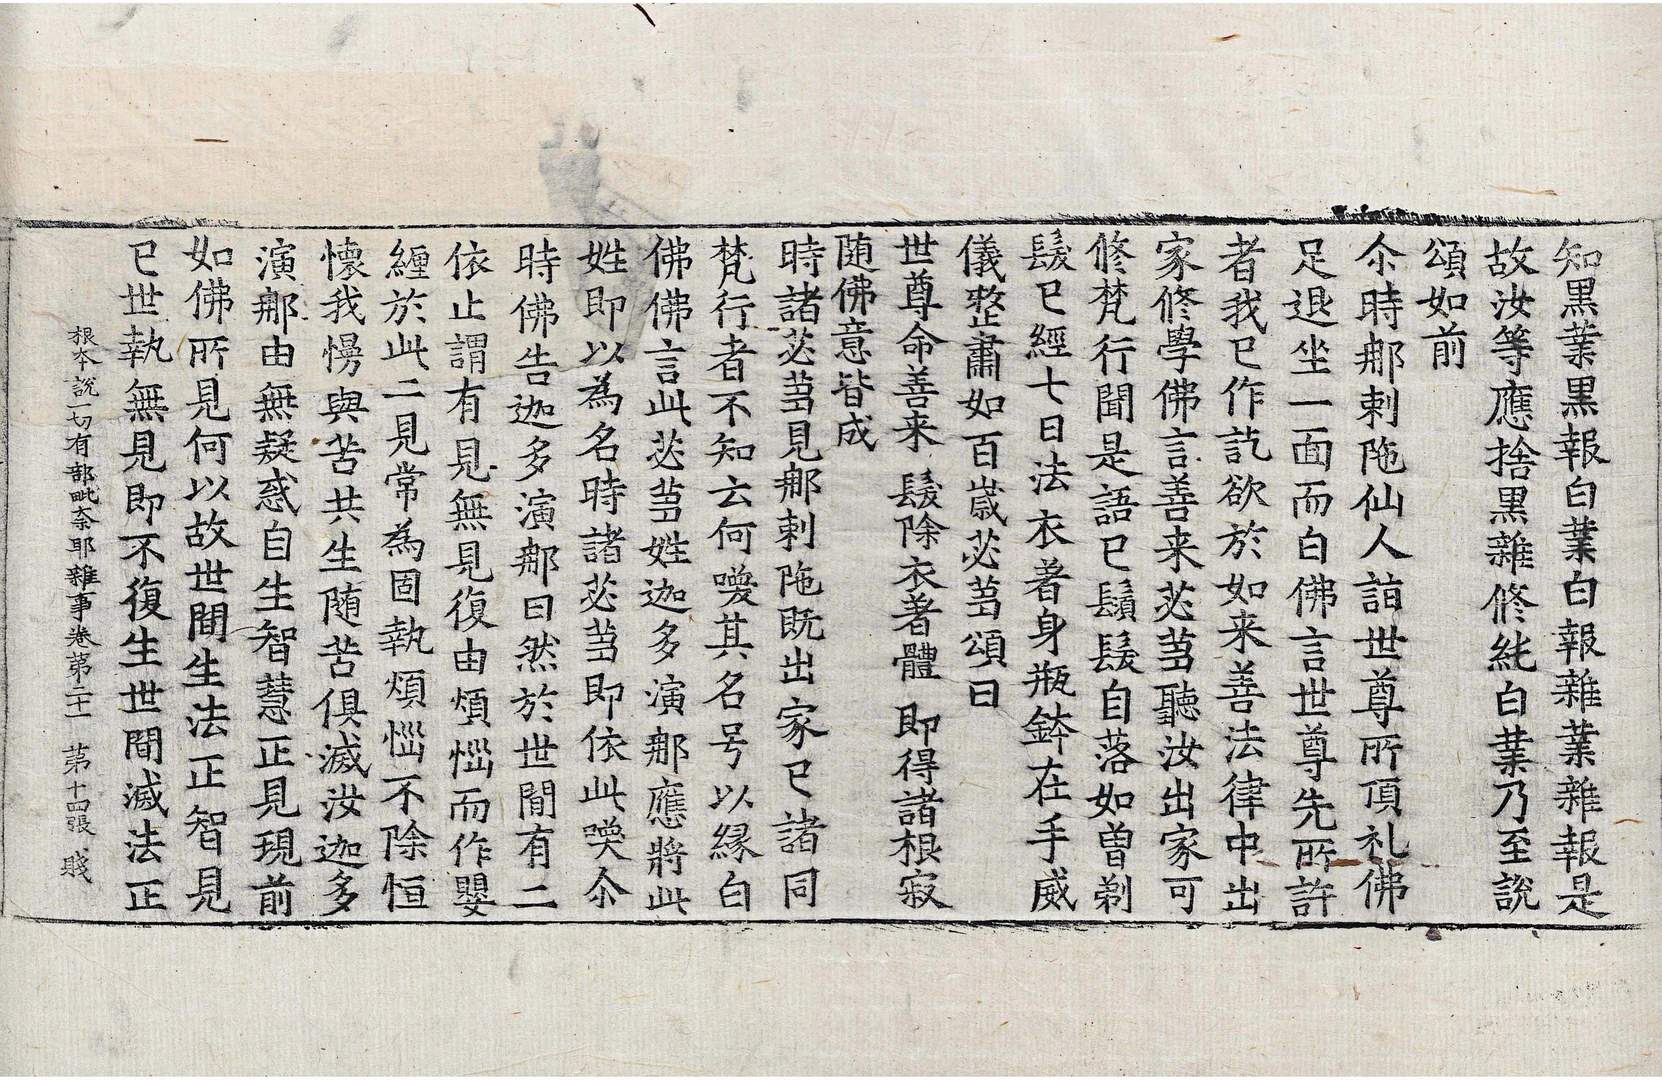 知黒業黒報白業白報雜業雜報是
故汝等應捨黒雜修純白業乃至說
頌如前
尒時𨚗剌陁仙人詣世尊所頂礼佛
足退坐一面而白佛言世尊先所許
者我已作訖欲於如来善法律中出
家修學佛言善来苾芻聽汝出家可
修梵行聞是語已鬚髮自落如曽剃
髮已經七日法衣著身瓶鉢在手威
儀整肅如百歳苾芻頌曰
世尊命善来 髮除衣著體 即得諸根寂
随佛意皆成
時諸苾芻見𨚗剌陁既出家已諸同
梵行者不知云何喚其名号以縁白
佛佛言此苾芻姓迦多演𨚗應將此
姓即以為名時諸苾芻即依此喚尒
時佛告迦多演𨚗曰然於世間有二
依止謂有見無見復由煩惱而作嬰
纏於此二見常為固執煩惱不除恒
懐我慢與苦共生随苦俱滅汝迦多
演𨚗由無疑惑自生智慧正見現前
如佛所見何以故世間生法正智見
已世執無見即不復生世間滅法正
根本說一切有部毗奈耶雜事卷第二十一 第十四張 賤